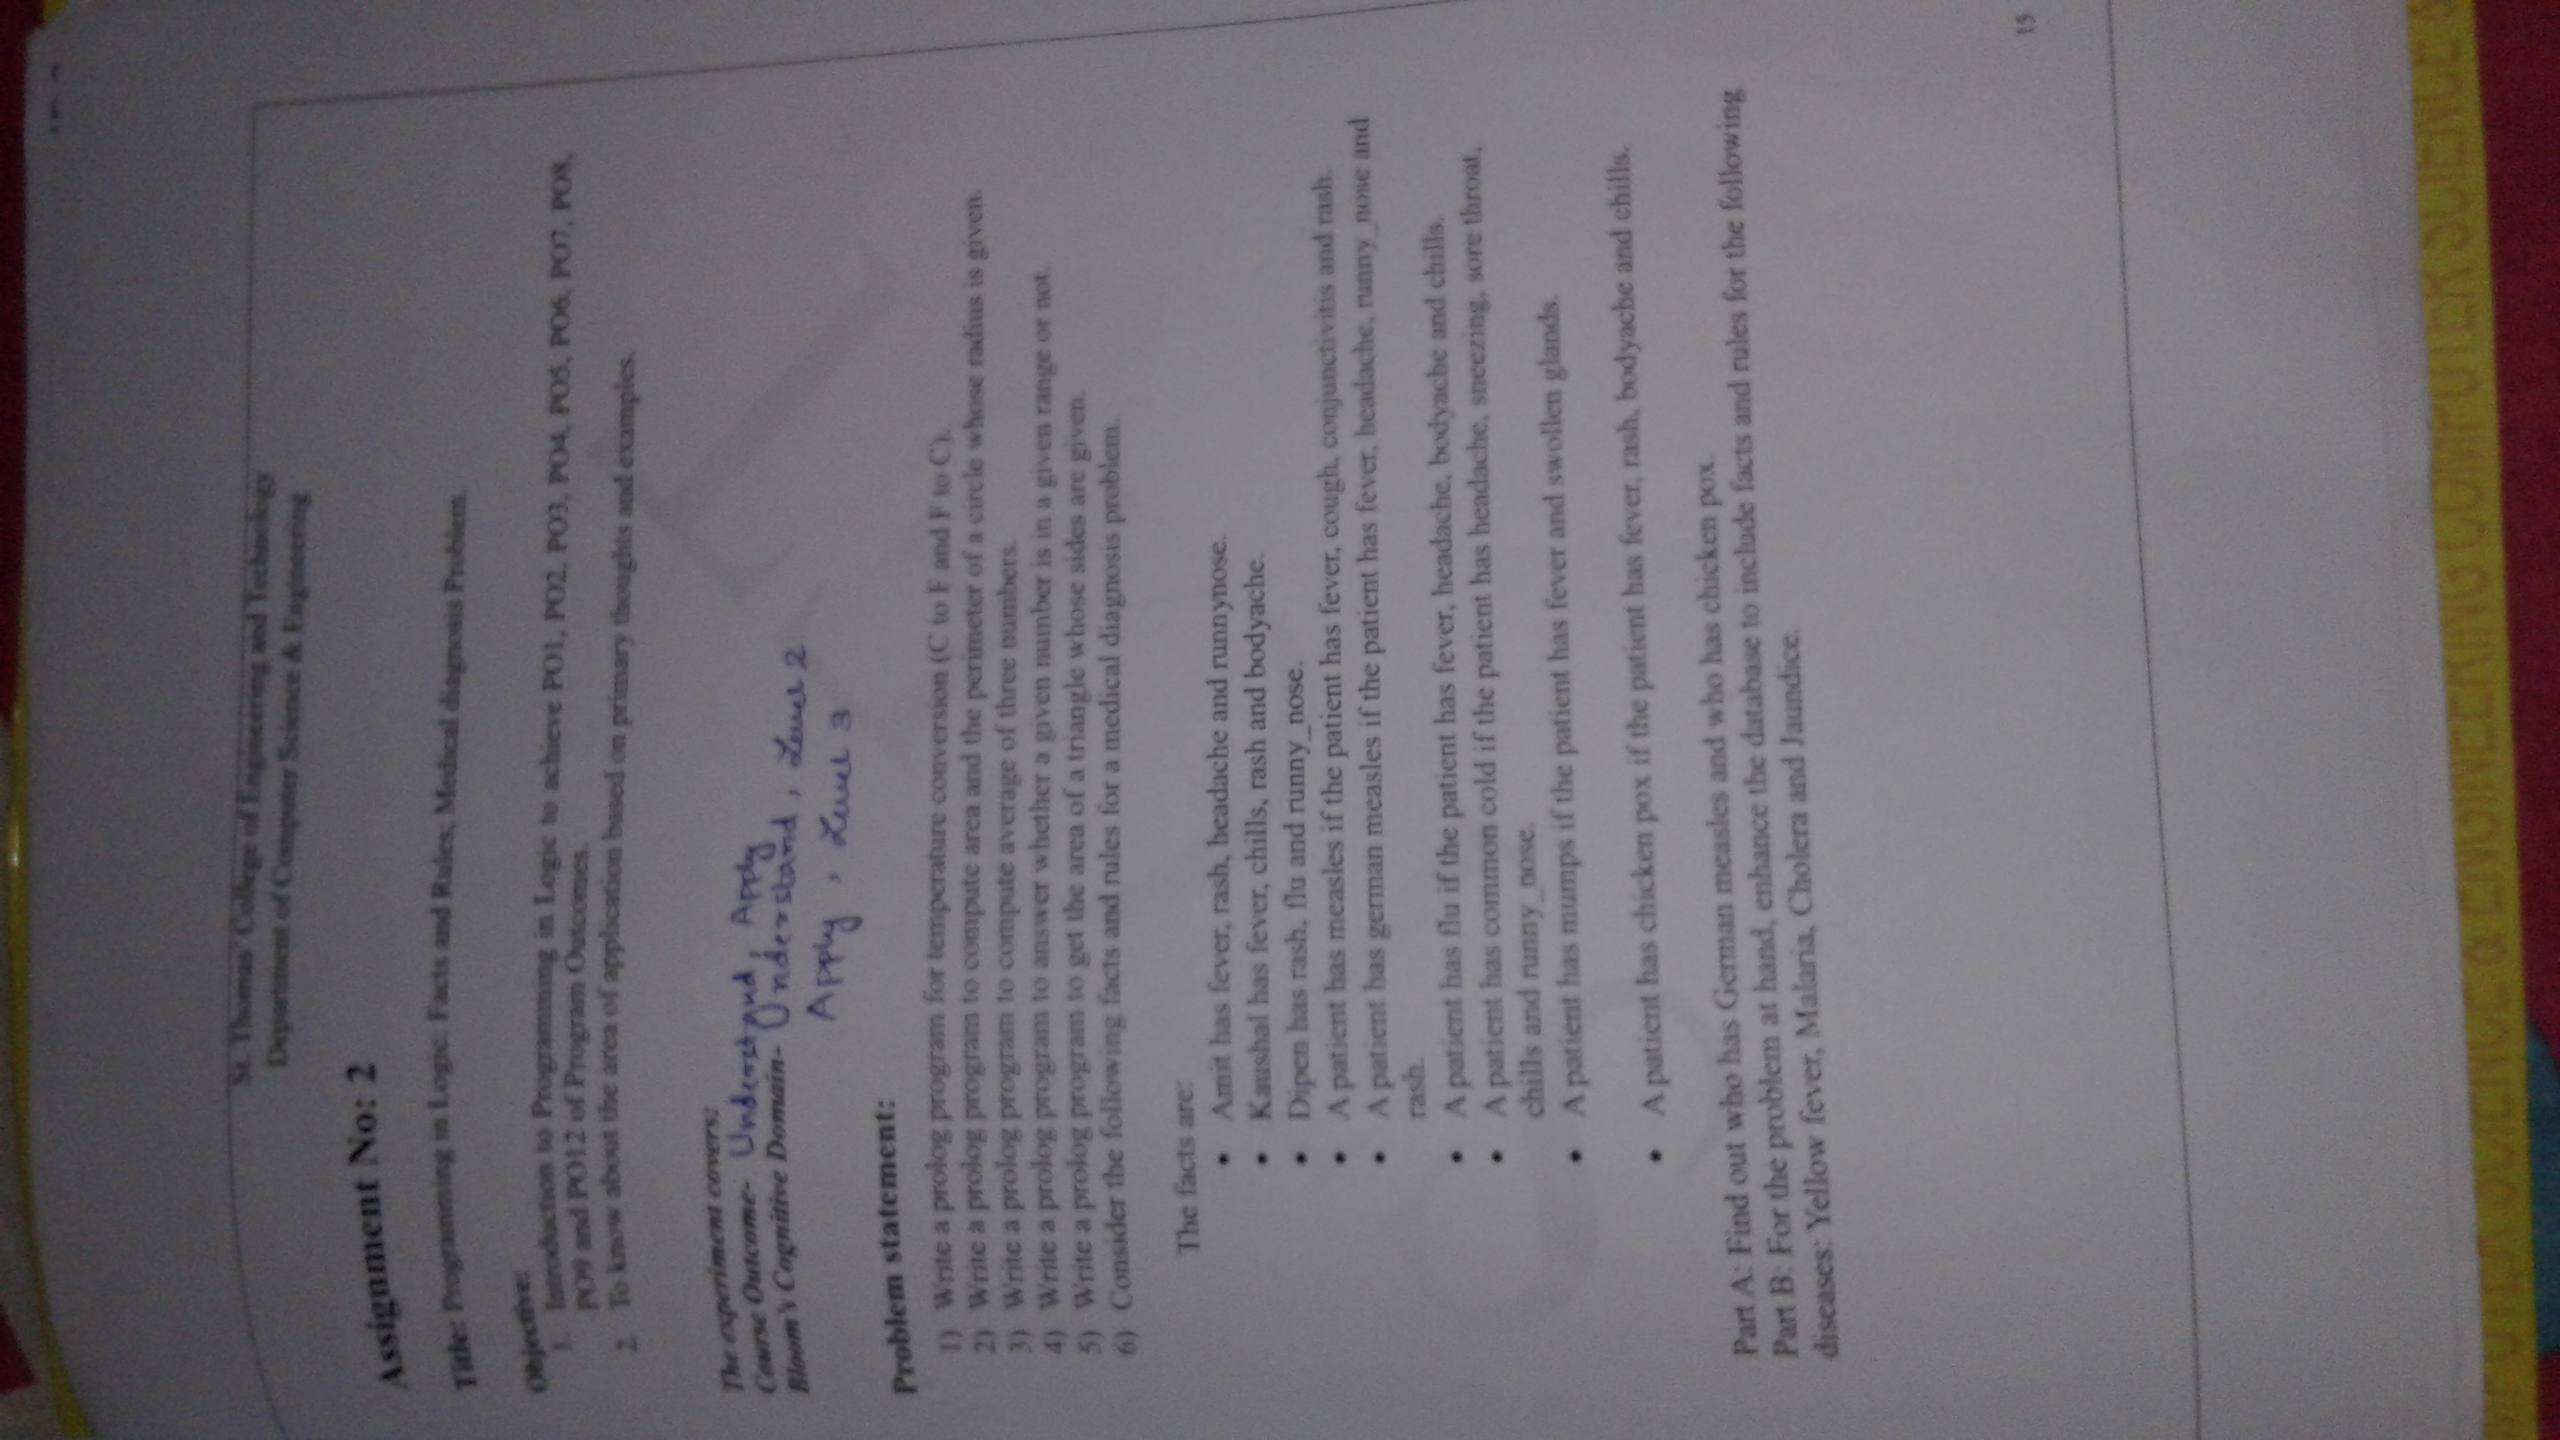 St. Thomas' College of Engineering and Technology
Department of Computer Science & Engineering
Assignment No: 2
Title: Programming in Logic: Facts and Rules; Medical diagnosis Problem.
Objective:
1. Introduction to Programming in Logic to achieve PO1, PO2, PO3, PO4, PO5, PO6, PO7, PO8,
PO9 and PO12 of Program Outcomes.
2. To know about the area of application based on primary thoughts and examples.
The experiment covers:
Course Outcome- Understand, Apply
Bloom's Cognitive Domain- Understand, Level 2
Apply, Level 3
Problem statement:
1) Write a prolog program for temperature conversion (C to F and F to C).
2) Write a prolog program to compute area and the perimeter of a circle whose radius is given.
3) Write a prolog program to compute average of three numbers.
4) Write a prolog program to answer whether a given number is in a given range or not.
5) Write a prolog program to get the area of a triangle whose sides are given.
6) Consider the following facts and rules for a medical diagnosis problem.
The facts are:
• Amit has fever, rash, headache and runnynose.
• Kaushal has fever, chills, rash and bodyache.
• Dipen has rash, flu and runny_nose.
• A patient has measles if the patient has fever, cough, conjunctivitis and rash.
• A patient has german measles if the patient has fever, headache, runny_nose and
rash.
• A patient has flu if the patient has fever, headache, bodyache and chills.
• A patient has common cold if the patient has headache, sneezing, sore throat,
chills and runny_nose.
• A patient has mumps if the patient has fever and swollen glands.
• A patient has chicken pox if the patient has fever, rash, bodyache and chills.
Part A: Find out who has German measles and who has chicken pox.
Part B: For the problem at hand, enhance the database to include facts and rules for the following
diseases: Yellow fever, Malaria, Cholera and Jaundice.
15
COMPUTER SCIENCE & ENGINEERING COMPUTER SCIENCE &